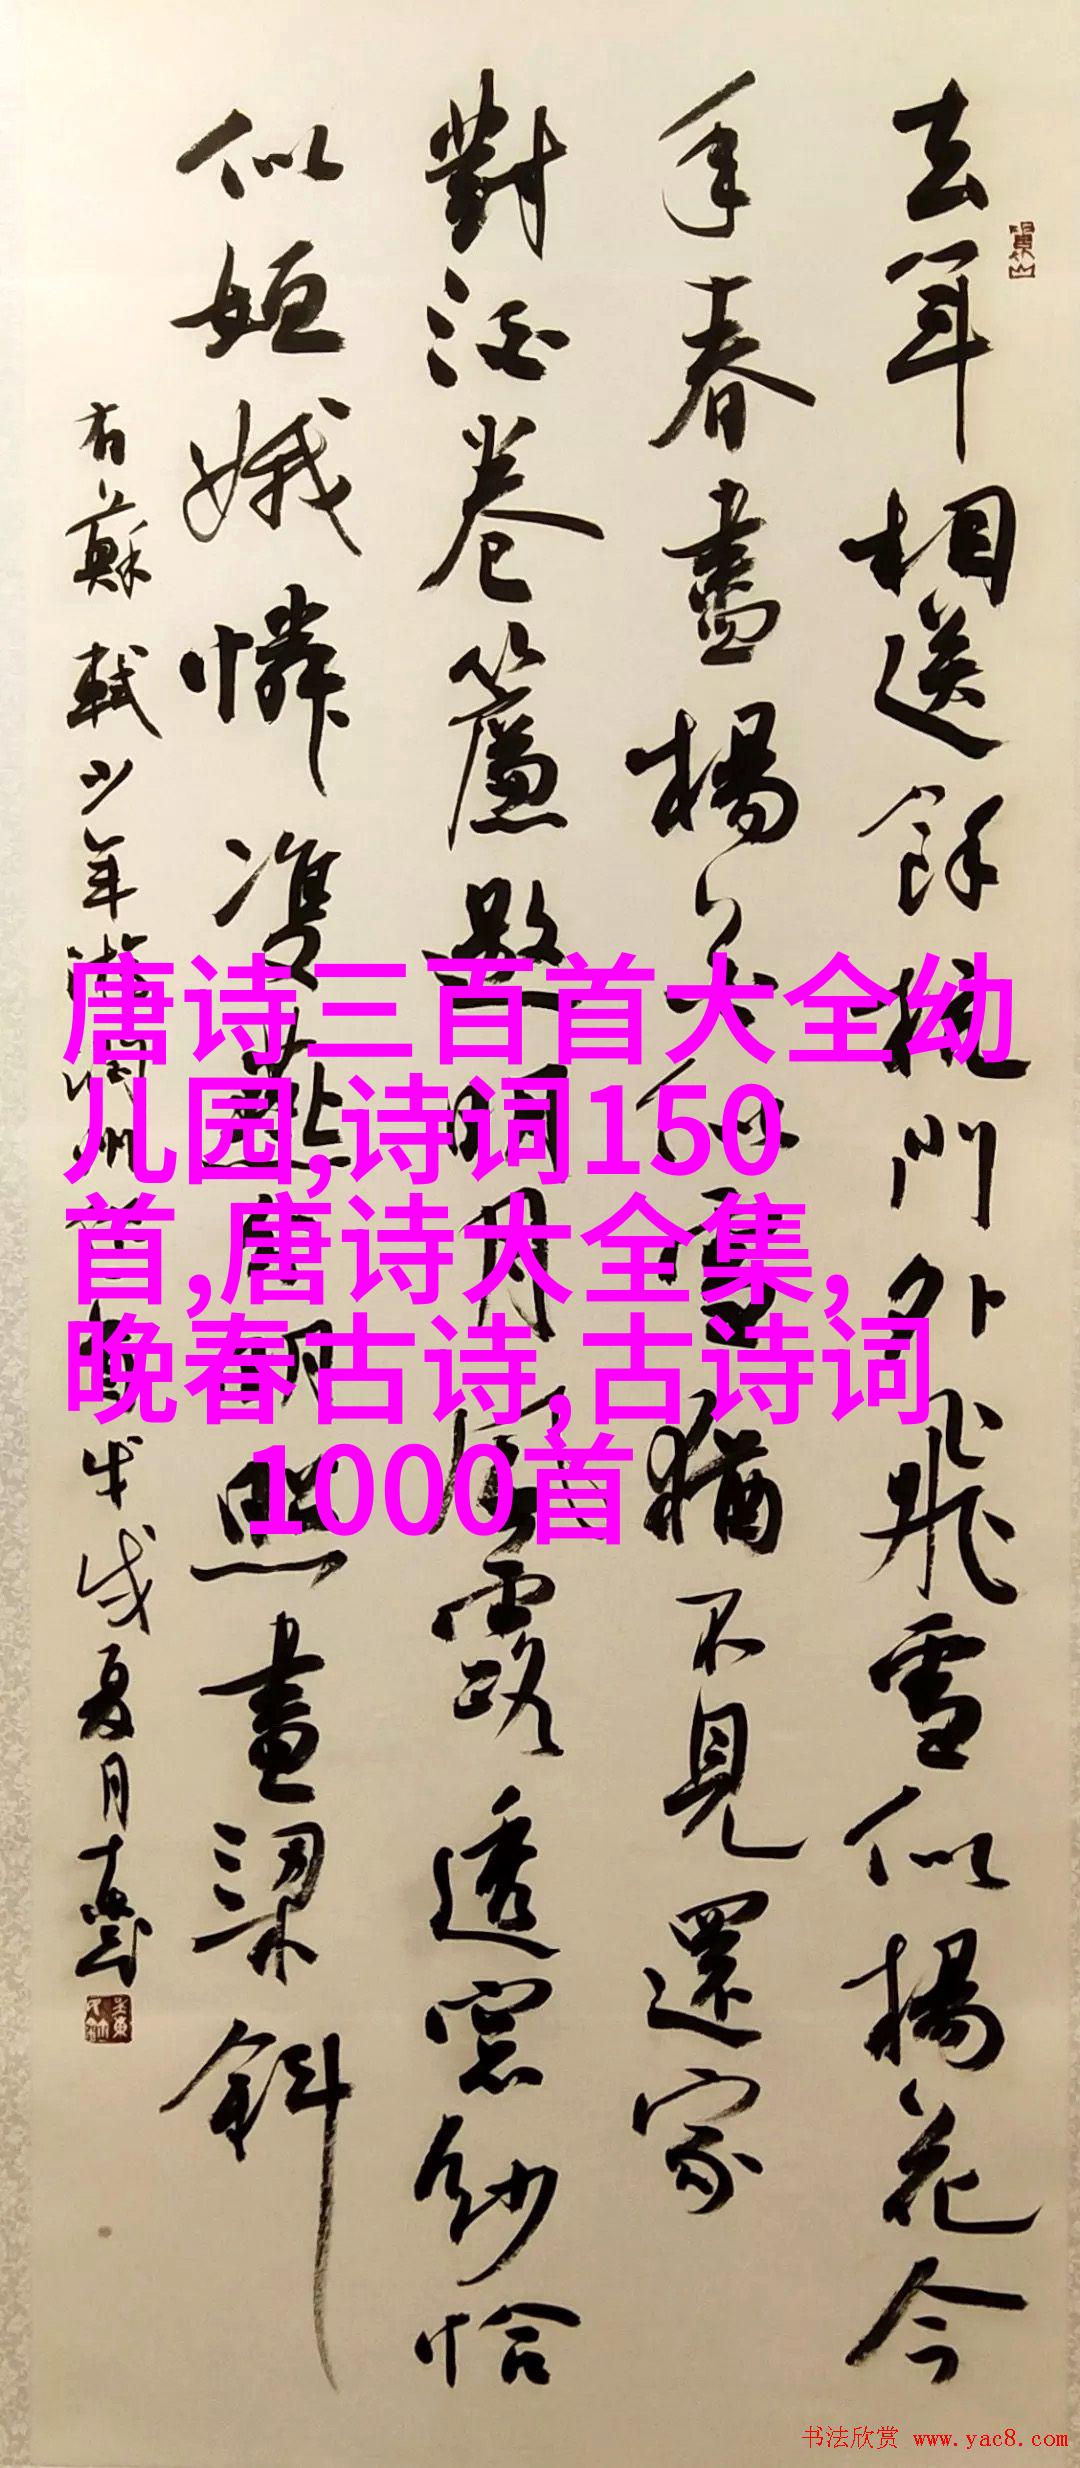 去年相送餘杭門外飛雪似楊花今
年春盡楊花似雪猶不見還家
對酒卷簾邀明月風露透窗紗恰
似姮娥憐雙燕分明照畫梁斜
右蘇軾少年游潤州作戊戌夏月
唐诗三百首大全幼
儿园,诗词150
首,唐诗大全集,
晚春古诗,古诗词
1000首
书法欣赏 www.yac8.com